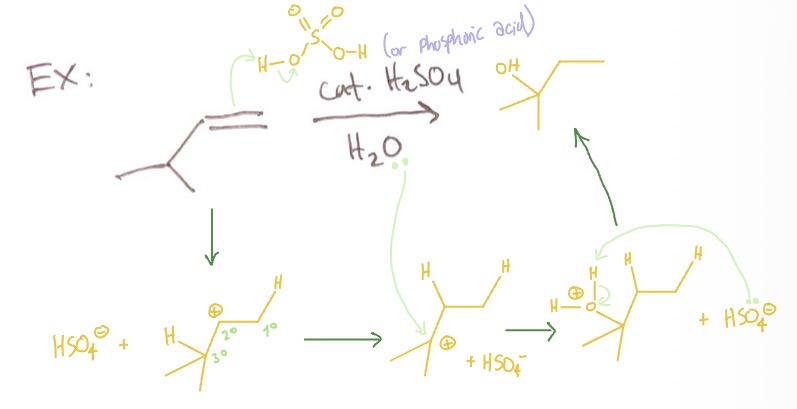 ⊖ O
S
H-O O-H
(or phosphoric acid)
EX:
cat. H₂SO₄
H₂O
OH
HSO₄⊖ + H ⊕ 2° 1° H
3°
H H
⊕
+ HSO₄⁻
H H H
H-O ⊕
+ HSO₄⊖